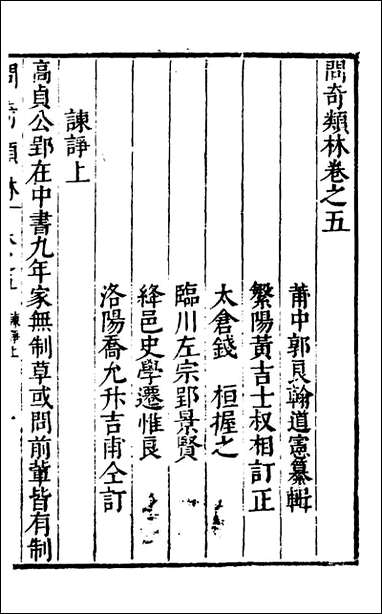 問奇類林卷之五
莆中郭良翰道憲纂輯
繁陽黃吉士叔相訂正
太倉錢 桓握之
臨川左宗郢景賢
絳邑史學遷惟良
洛陽喬允升吉甫仝訂
諫諍上
高貞公郢在中書九年家無制草或問前輩皆有制
問奇類林 卷之五 諫諍上 一